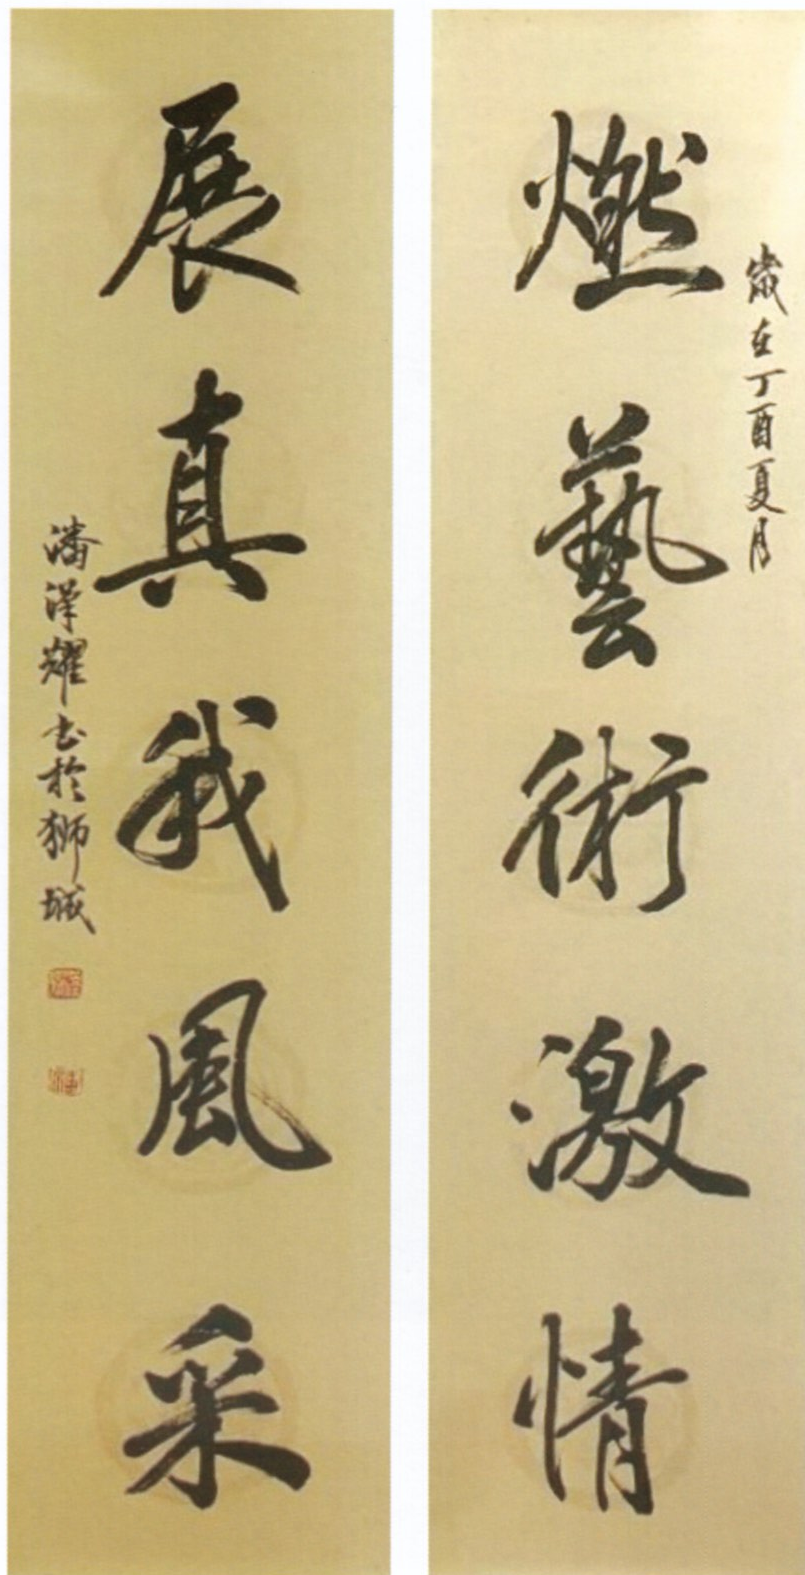 歲在丁酉夏月
燃藝術激情
展真我風采
潘澤耀书於狮城